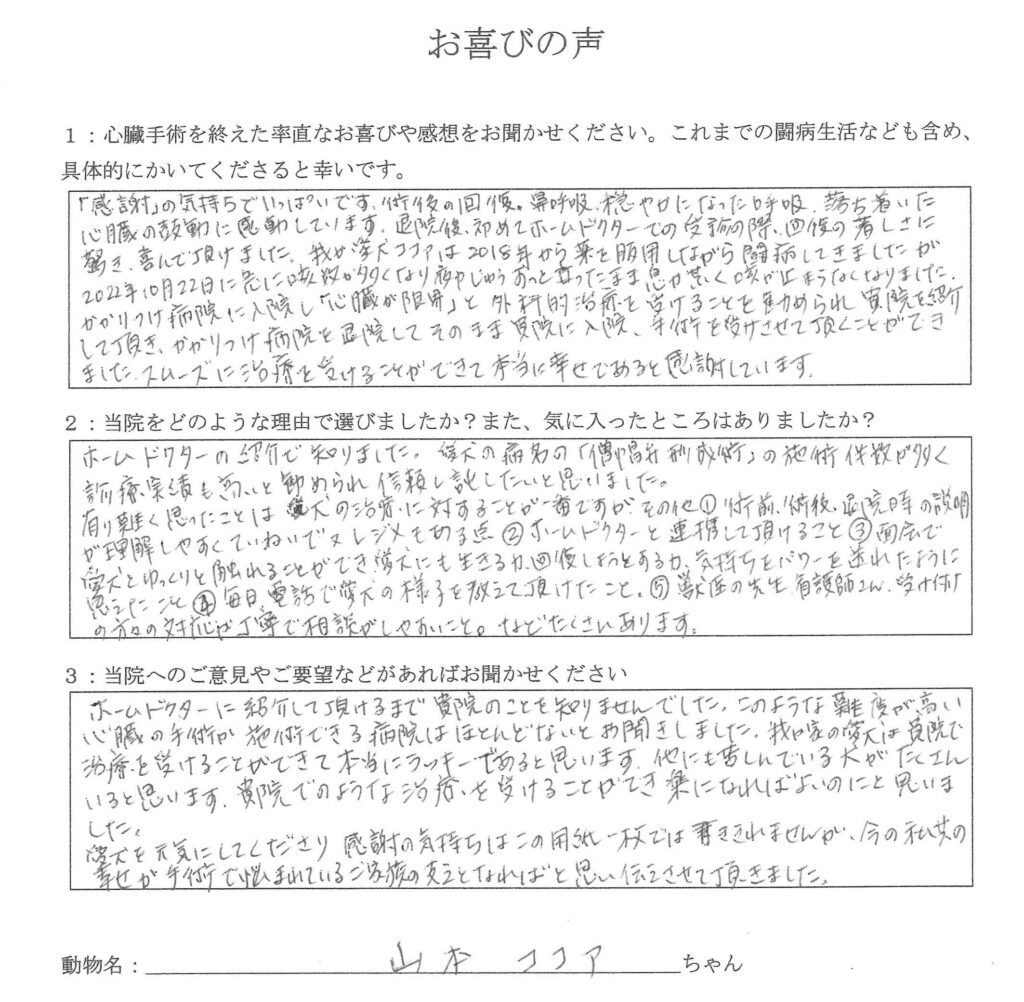 お喜びの声
1:心臓手術を終えた率直なお喜びや感想をお聞かせください。これまでの闘病生活なども含め、
具体的にかいてくださると幸いです。
「感謝」の気持ちでいっぱいです。術後の回復。鼻呼吸、穏やかになった呼吸、落ち着いた
心臓の鼓動に感動しています。退院後、初めてホームドクターでの受診の際、回復の著しさに
驚き、喜んで頂けました。我が愛犬ココアは2018年から薬を服用しながら闘病してきましたが
2022年10月22日に急に咳数が多くなり夜中じゅうずっと立ったまま息が荒く咳が止まらなくなりました。
かかりつけ病院に入院し「心臓が限界」と外科的治療を受けることを勧められ貴院を紹介
して頂き、かかりつけ病院を退院してそのまま貴院に入院、手術を受けさせて頂くことができ
ました。スムーズに治療を受けることができて本当に幸せであると感謝しています。
2:当院をどのような理由で選びましたか?また、気に入ったところはありましたか?
ホームドクターの紹介で知りました。愛犬の病名の「僧帽弁形成術」の施術件数が多く
診療実績も高いと勧められ信頼し託したいと思いました。
有り難く思ったことは愛犬の治療に対することが一番ですが、その他①術前、術後、退院時の説明
が理解しやすくていねいでレジメもある点②ホームドクターと連携して頂けること③面会で
愛犬とゆっくりと触れることができ愛犬にも生きる力、回復しようとする力、気持ちをパワーを送れたように
思えたこと④毎日、電話で愛犬の様子を教えて頂けたこと。⑤獣医の先生、看護師さん、受け付け
の方々の対応が丁寧で相談がしやすいこと。などたくさんあります。
3:当院へのご意見やご要望などがあればお聞かせください
ホームドクターに紹介して頂けるまで貴院のことを知りませんでした。このような難度が高い
心臓の手術が施術できる病院はほとんどないとお聞きしました。我が家の愛犬は貴院で
治療を受けることができて本当にラッキーであると思います。他にも苦しんでいる犬がたくさん
いると思います。貴院でのような治療を受けることができ楽になればよいのにと思いま
した。
愛犬を元気にしてくださり感謝の気持ちはこの用紙一枚では書ききれませんが、今の私共の
幸せが手術で悩まれているご家族の支えとなればと思い伝えさせて頂きました。
動物名:山本 ココア ちゃん